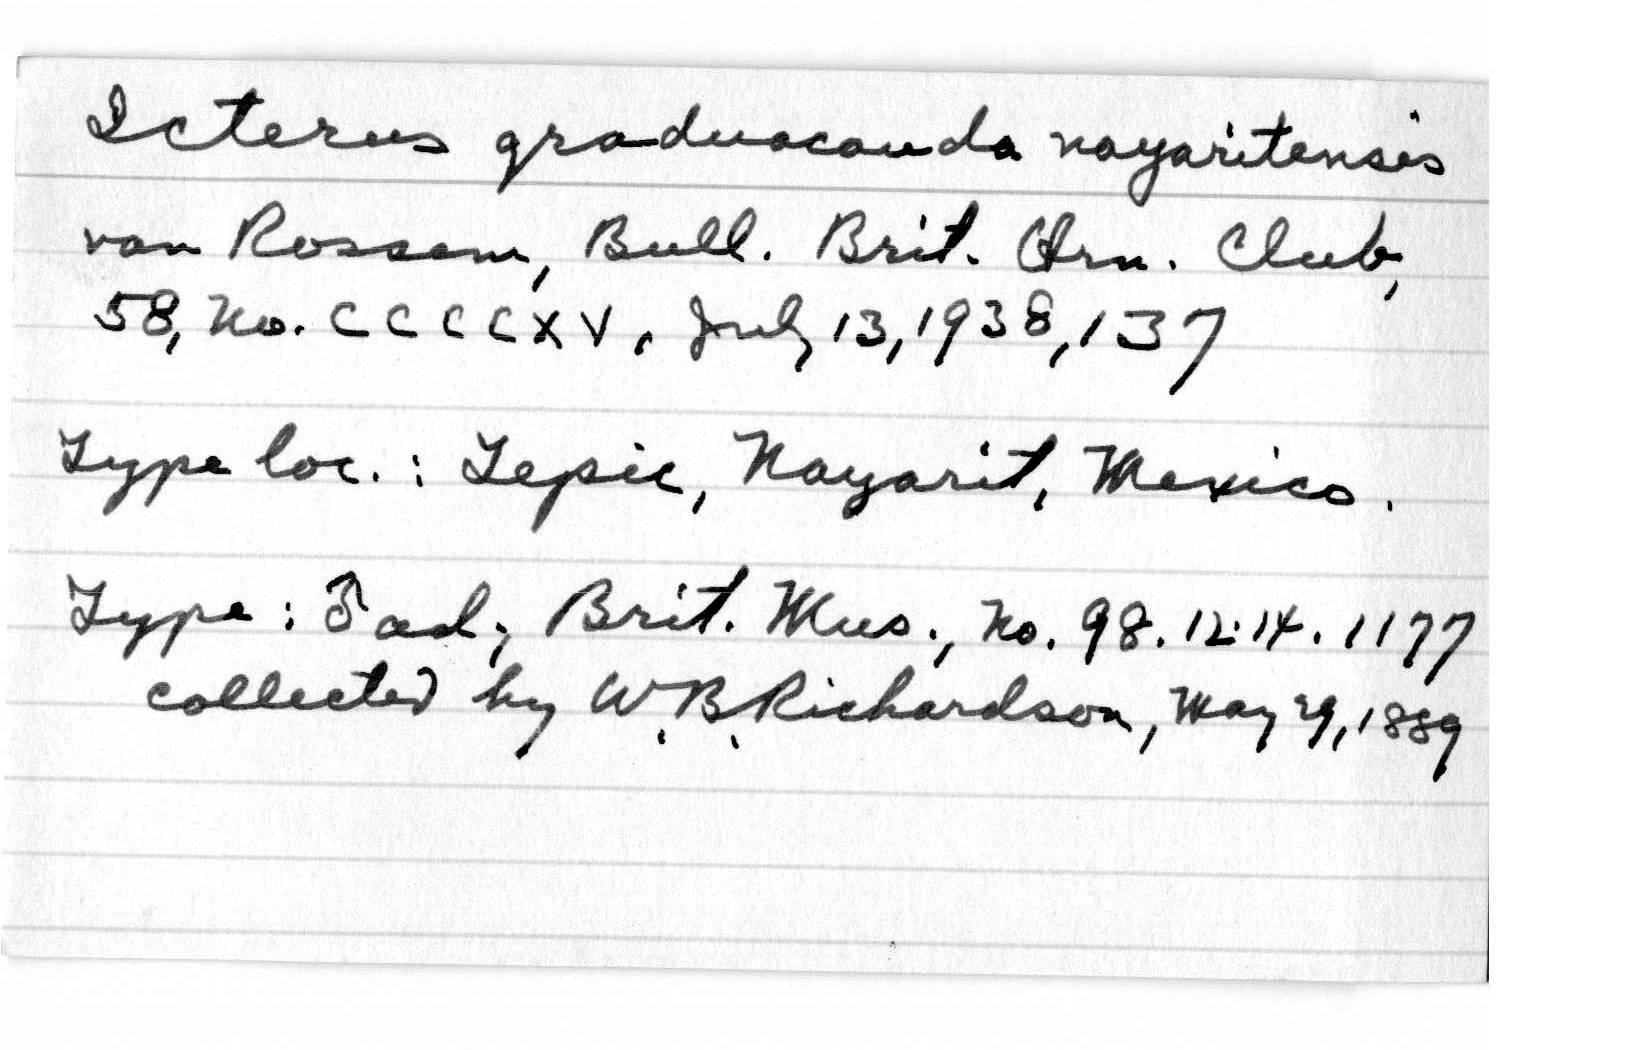 Icterus graduacauda nayaritensis
van Rossem, Bull. Brit. Orn. Club,
58, No. CCCCXV, July 13, 1938, 137
Type loc. : Tepic, Nayarit, Mexico.
Type : ♂ ad., Brit. Mus., No. 98.12.14.1177
collected by W.B. Richardson, May 29, 1889